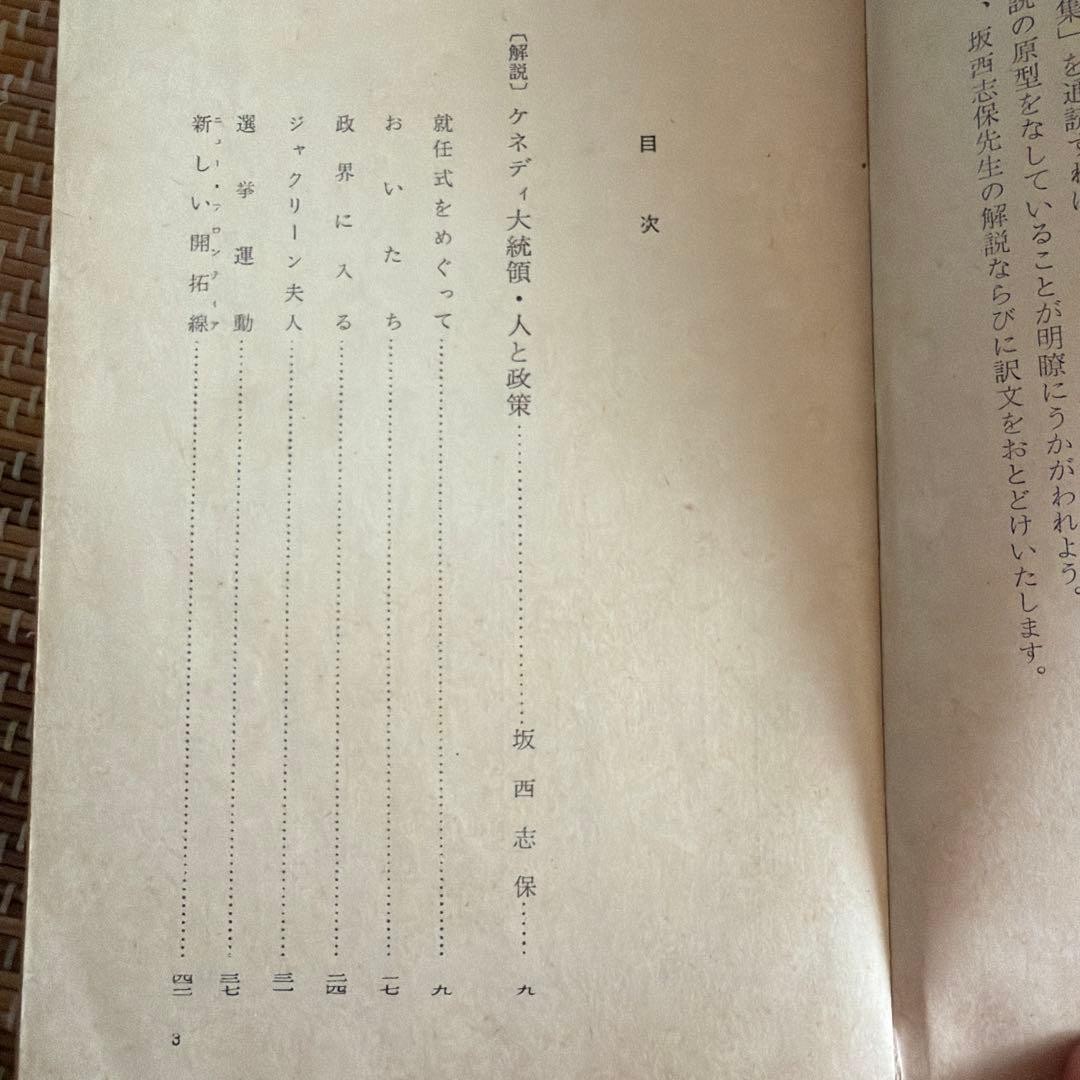 集」を通読すれば
説の原型をなしていることが明瞭にうかがわれよう。
、坂西志保先生の解説ならびに訳文をおとどけいたします。
目次
〔解説〕ケネディ大統領・人と政策……坂西志保……九
就任式をめぐって……九
おいたち……一七
政界に入る……二四
ジャクリーン夫人……三一
選挙運動……三七
ニュー・フロンティア
新しい開拓線……四二
3